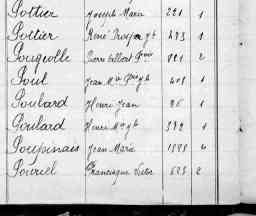 Pottier Joseph Marie 221 1
Pottier René 473 1
Pougeolle Pierre Gilbert 821 2
Poul Jean 408 1
Poulard Henri Jean 26 1
Poulard Henri 372 1
Poupinais Jean Marie 1595 4
Pouriel Francisque Victor 623 2